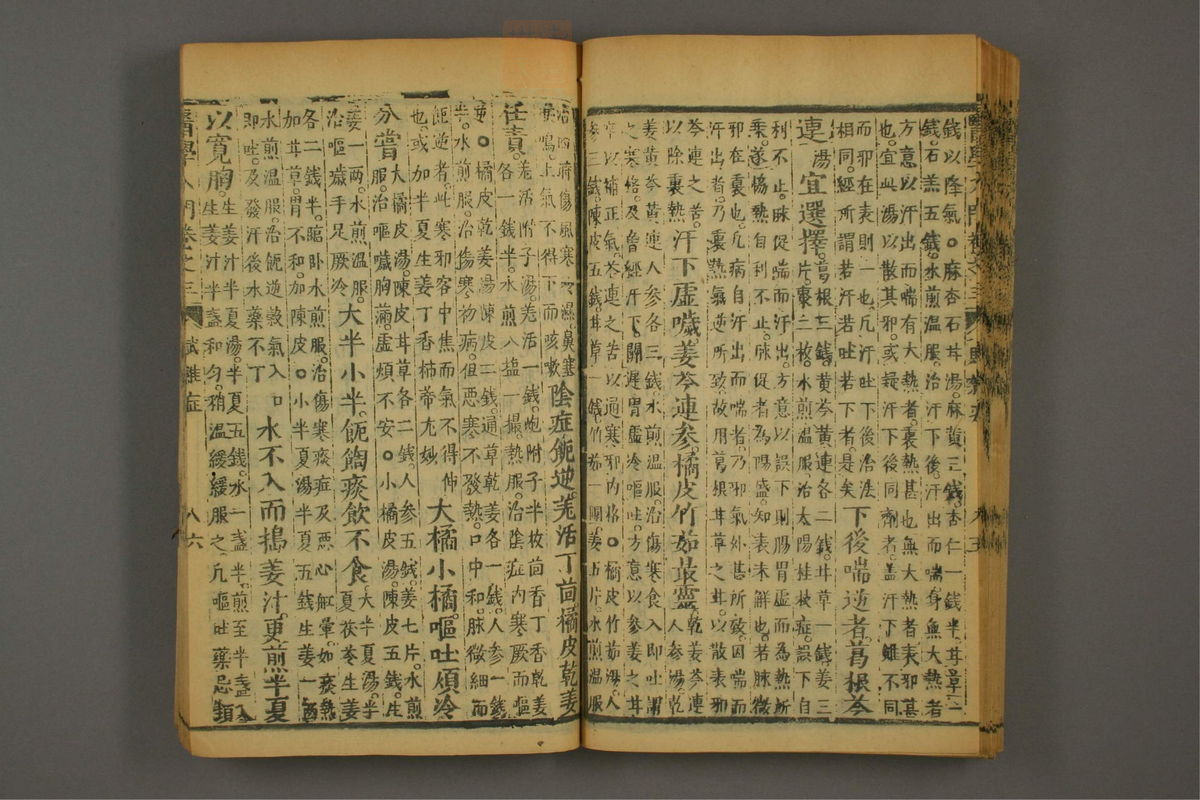 錢以降氣○麻杏石甘湯麻黃三錢杏仁一錢半甘草一
錢石羔五錢水煎溫服治汗下後汗出而喘身無大熱者
方意以汗出而喘有大熱者裏熱甚也無大熱者表邪甚
也宜此湯以散其邪或疑汗下後同劑者蓋汗下雖不同
而邪在表則一也凡汗吐下後治法
相同經所謂若汗若吐若下者是矣下後喘逆者葛根芩
連湯宜選擇葛根三錢黃芩黃連各二錢甘草一錢姜三
片棗二枚水煎溫服治太陽桂枝症誤下自
利不止脉促喘而汗出方意以誤下則腸胃虛而為熱所
乘遂協熱自利不止脉促者為陽盛知表未解也若脉微
邪在裏也凡病自汗出而喘者乃邪氣外甚所致因喘而
汗出者乃裏熱氣逆所致故用葛根甘草之甘以散表邪
芩連之苦
以除裏熱汗下虛噦姜芩連參橘皮竹茹最靈人參湯乾
姜黃芩黃連人參各三錢水煎溫服治傷寒食入即吐謂
之寒格及曾經汗下關遲胃虛冷嘔吐方意以參姜之甘
辛以補正氣芩連之苦以通寒邪內格○橘皮竹茹湯人
參三錢陳皮五錢甘草一錢竹茹一團姜五片水煎溫服
鼻塞
鳴上氣不得下而咳嗽陰症呃逆羌活丁茴橘皮乾姜
任責羌活附子湯羌活一錢炮附子半枚茴香丁香乾姜
各一錢半水煎入塩一撮熱服治陰症內寒厥而嘔
○橘皮乾姜湯陳皮二錢通草乾姜各一錢人參一錢
半水煎服治傷寒初病但惡寒不發熱口中和脉微細而
呃逆者此寒邪客中焦而氣不得伸
也或加半夏生姜丁香柿蒂尤妙大橘小橘嘔吐煩冷
分嘗大橘皮湯陳皮甘草各二錢人參五錢姜七片水煎
服治嘔噦胸滿虛煩不安○小橘皮湯陳皮五錢生
姜一兩水煎溫服
治嘔噦手足厥冷大半小半呃餡痰飲不食大半夏湯半
夏茯苓生姜
各二錢半臨卧水煎服治傷寒痰症及惡心觧暈如痰熱
加甘草胃不和加陳皮○小半夏湯半夏五錢生姜一兩
水煎溫服治呃逆穀氣入口
即吐及發汗後水藥不丁水不入而搗姜汁更煎半夏
以寬胸生姜汁半夏湯半夏五錢水一盞半煎至半盞入
生姜汁半盞和勻稍溫緩緩服之凡嘔吐藥忌類
醫學入門卷之三　八六